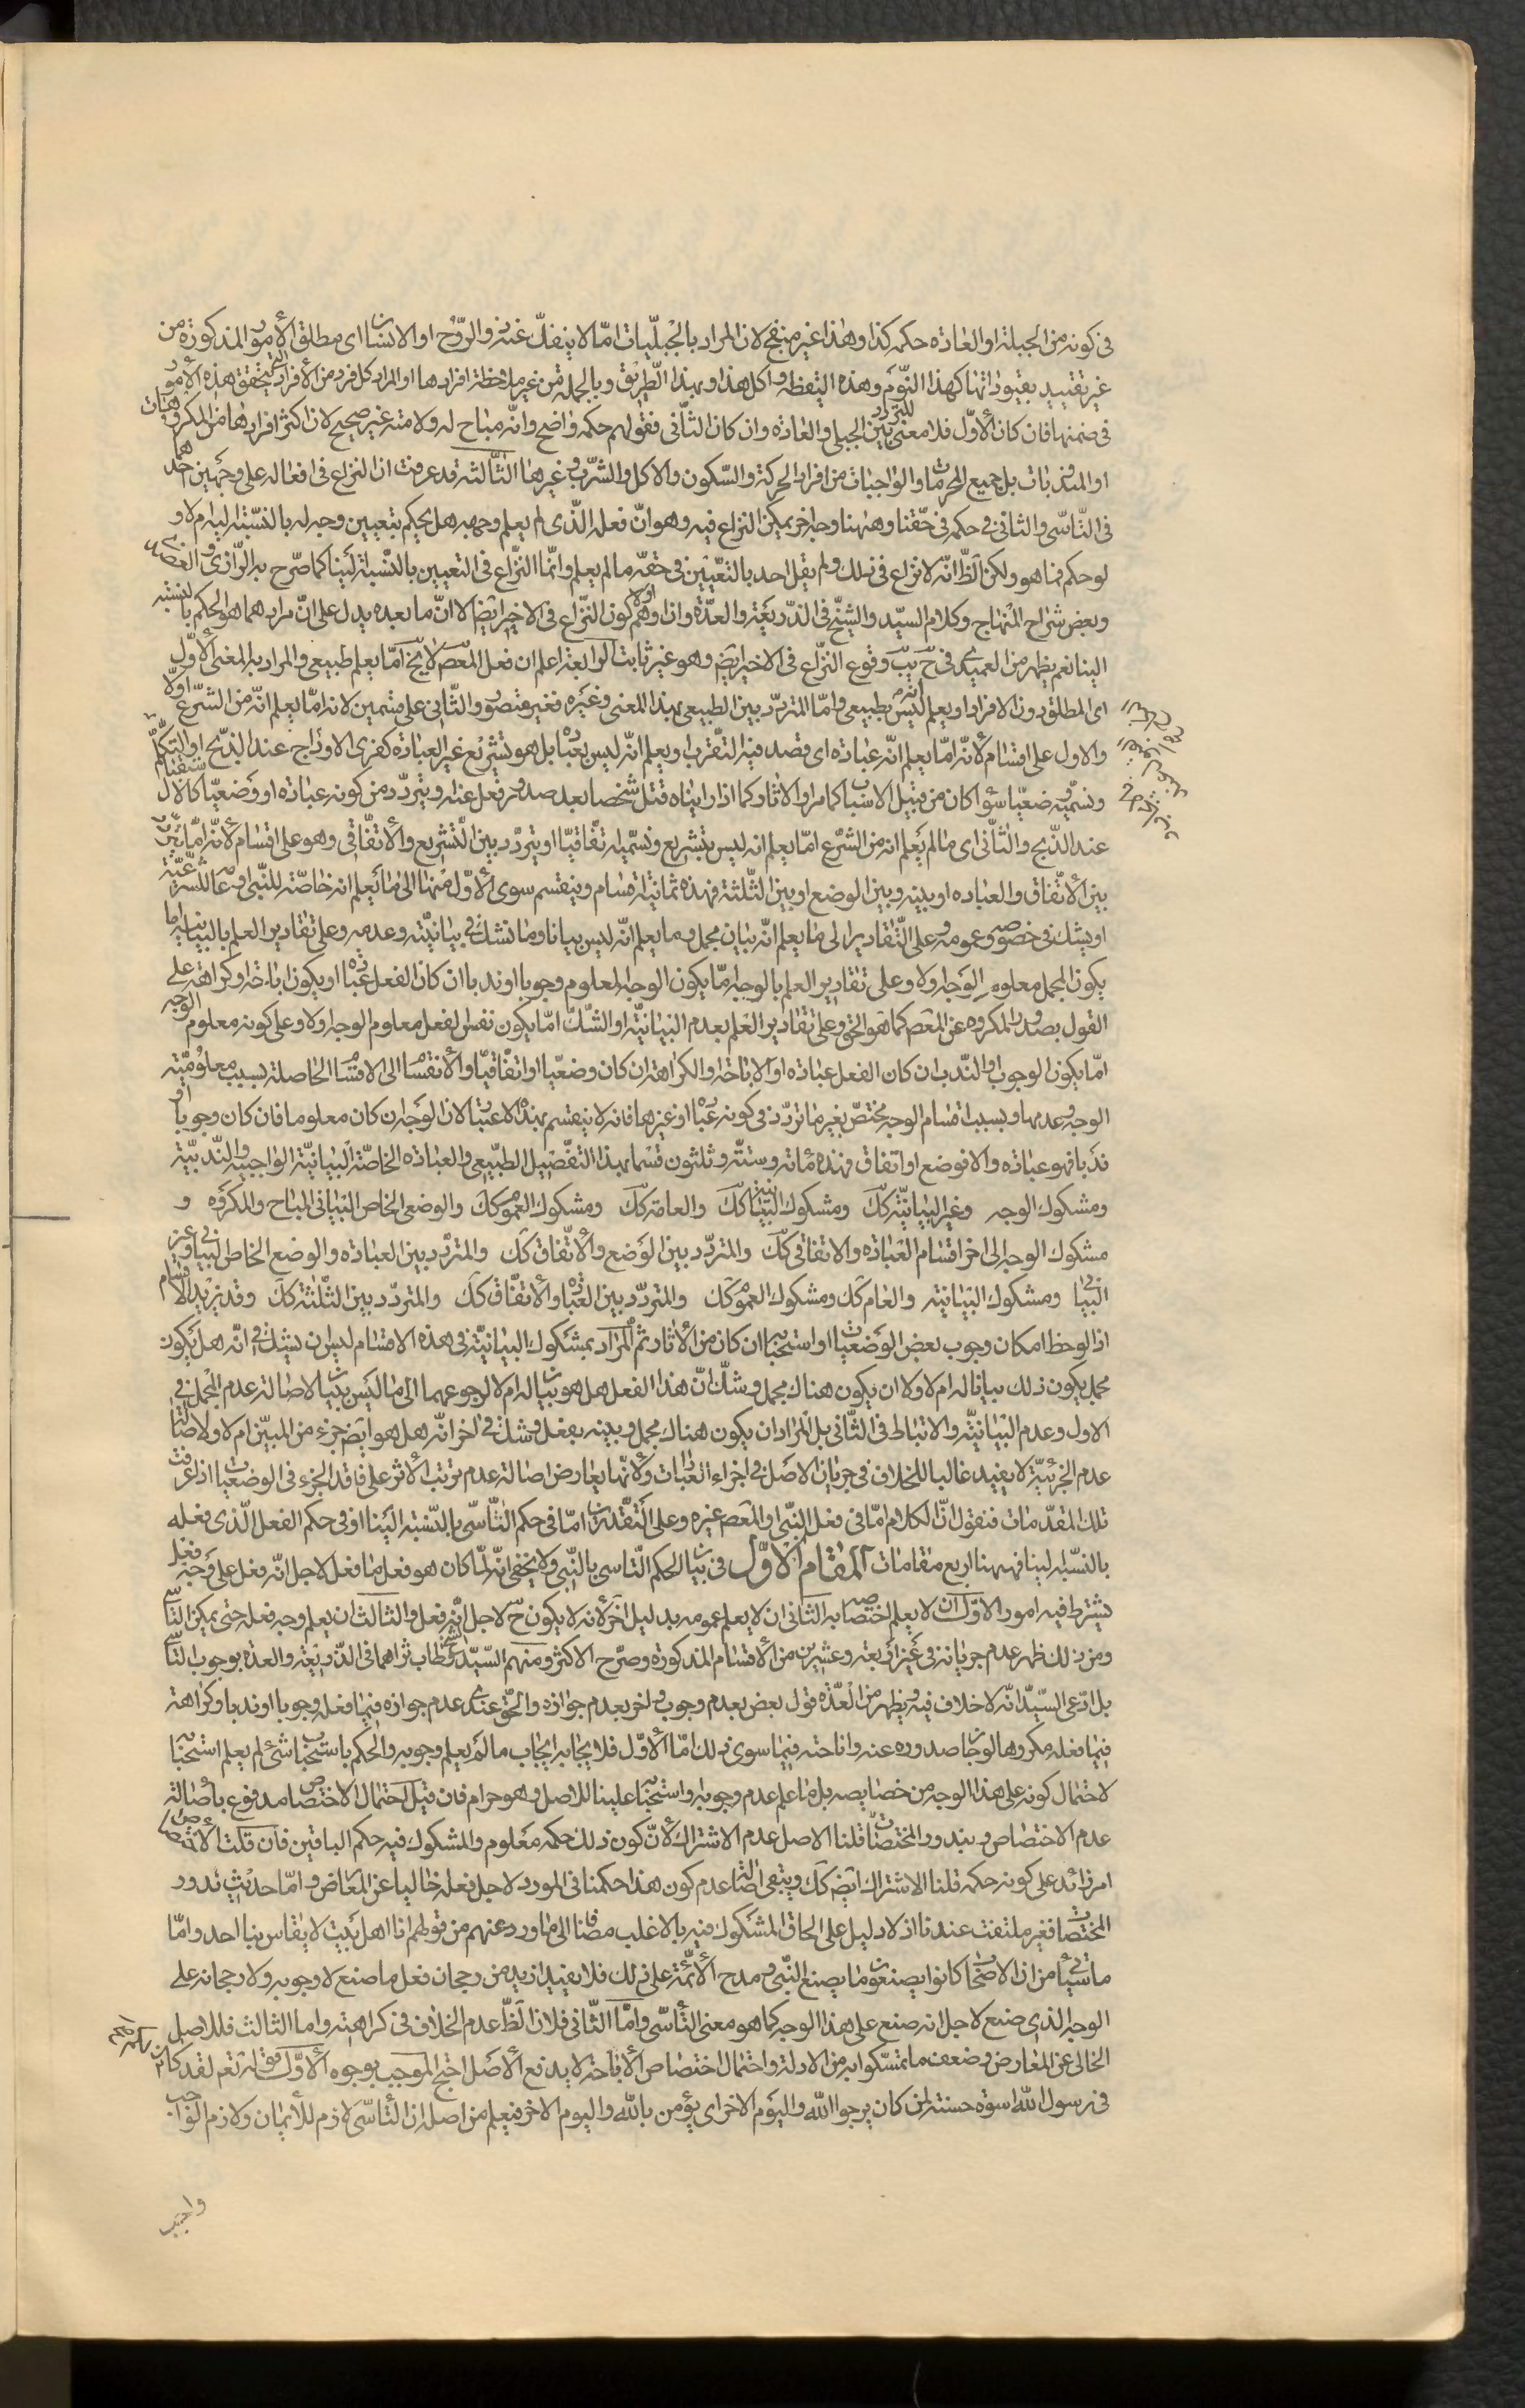 فى كونه من الجبلة او العادة حكمه كذا وهذا غير منقح لان المراد بالجبليات امّا لا ينفكّ عنه ذو الرّوح او الانسان اى مطلق الأمور المذكورة من
غير تقييد بقيود اتها كهذا النّوم وهذه اليقظة واكل هذا وبهذا الطّريق وبالجملة من غير ملاحظة افرادها او المراد كل فرد من الأفراد يتحقق هذه الأمور
فى ضمنها فان كان الأوّل فلا معنى للتردد بين الجبلى والعادة وان كان الثّانى فقولهم حكمه واضح وانّه مباح له ولامته غير صحيح لان اكثر افرادها من المكروهات
او المندوبات بل جميع المحرمات والواجبات من افراد الحركة والسّكون والاكل والشّرب وغيرها الثّالثة قد عرفت ان النزاع فى افعاله على وجهين احدهما
فى التّاسّى والثانى فى حكمه فى حقّنا وههنا وجه اخر يمكن النزاع فيه وهو انّ فعله الّذى لم يعلم وجهه هل يحكم بتعيين وجهه له بالنسبة اليه ام لا و
لو حكم فما هو ولكن الظّ انّه لا نزاع فى ذلك ولم يقل احد بالتعيين فى حقّه ما لم يعلم وانّما النّزاع فى التعيين بالنّسبة الينا كما صرّح به الرّازى و العضدى
وبعض شراح المنهاج وكلام السيّد والشيخ فى الذريعة والعدّة وان اوهم اولا كون النّزاع فى الاخير ايضا الا انّ ما بعده يدل على انّ مرادهما هو الحكم بالنسبة
الينا نعم يظهر من العميدى فى ح يب وقوع النّزاع فى الاخير ايضا وهو غير ثابت الرابعة اعلم ان فعل المعص لا يخ امّا يعلم طبيعى والمراد به المعنى الأوّل
اى المطلق دون الافراد او يعلم انه ليس بطبيعى وامّا المتردّد بين الطبيعى بهذا المعنى وغيره فغير متصور والثّانى على قسمين لانه امّا يعلم انّه من الشرع اولا
والاول على اقسام لأنّه امّا يعلم انّه عبادة اى قصد فيه التقرب او يعلم انّه ليس بعبادة بل هو تشريع غير العبادة كفرى الاوداج عند الذبح او التكلم
ونسميه وضعيّا سواء كان من قبيل الاسباب كما مر او الاثار كما اذا رايناه قتل شخصا بعد صدور فعل عنه ويتردّد من كونه عبادة او وضعيّا كالاستقبال
عند الذّبح والثّانى اى ما لم يعلم انه من الشرع امّا يعلم انه ليس بتشريع ونسمّيه اتفاقيّا او يتردّد بين التّشريع والأتفاقى وهو على اقسام لأنّه امّا يتردد
بين الأتفاق والعبادة او بينه وبين الوضع او بين الثّلثة فهذه ثمانية اقسام وينقسم سوى الأوّل منها الى ما يعلم انه خاصّة للنّبى او عامة للشرعية
او يشك فى خصوصه وعمومه وعلى التّقادير الى ما يعلم انّه بيان مجمل وما يعلم انّه ليس بيانا وما نشك فى بيانيّته وعدمه وعلى تقادير العلم بالبيانية اما
يكون المجمل معلوم الوجه اولا وعلى تقادير العلم بالوجه امّا يكون الوجه المعلوم وجوبا او ندبا ان كان الفعل عبادة او يكون اباحة او كراهة على
القول بصدور المكروه عن المعص كما هو الحق وعلى تقادير العلم بعدم البيانيّة او الشكّ امّا يكون نفس الفعل معلوم الوجه اولا وعلى كونه معلوم الوجه
امّا يكون الوجوب او الندب ان كان الفعل عبادة او الاباحة او الكراهة ان كان وضعيّا او اتفاقيّا والأنقسام الى الاقسام الحاصلة بسبب معلوميّة
الوجه وعدمها وبسبب اقسام الوجه مختصّ بغير ما تردّد فى كونه عبادة او غيرها فانه لا ينقسم بهذا الاعتبار لان الوجه ان كان معلوما فان كان وجوبا او
ندبا فهو عبادة والا فوضع او اتفاق فهذه مأته وستّة وثلثون قسما بهذا التفصيل الطبيعى والعبادة الخاصّة البيانيّة الواجبة والنّدبيّة
ومشكوك الوجه وغير البيانيّة كك ومشكوك البيانيّة كك والعامة كك ومشكوك العموم كك والوضعى الخاص البيانى المباح والمكروه و
مشكوك الوجه الى اخر اقسام العبادة والاتفاقى كك والمتردّد بين الوضع والأتّفاق كك والمتردّد بين العبادة والوضع الخاص البيانى وغير
البيانى ومشكوك البيانية والعام كك ومشكوك العموم كك والمتردّد بين العبادة والأتفّاق كك والمتردّد بين الثّلثة كك وقد يزيد الأقسام
اذا لوحظ امكان وجوب بعض الوضعيات او استحبابه ان كان من الأثار ثم المراد بمشكوك البيانيّة فى هذه الاقسام ليس ان يشك فى انّه هل يكون
مجمل يكون ذلك بيانا له ام لا ولا ان يكون هناك مجمل وشكّ انّ هذا الفعل هل هو بيان له ام لا لرجوعهما الى ما ليس بيانا لاصالة عدم المجمل فى
الاول وعدم البيانيّة والارتباط فى الثّانى بل المراد ان يكون هناك مجمل وبينه بفعل وشك فى اخر انّه هل هو ايضا جزء من المبيّن ام لا ولا صالة
عدم الجزئيّة لا يفيد غالبا للخلاف فى جريان الاصل فى اجزاء العبادات ولأنّها يعارض اصالة عدم ترتب الأثر على فاقد الجزء فى الوضعيات اذا عرفت
تلك المقدّمات فنقول انّ الكلام امّا فى فعل النّبى او المعص غيره وعلى التّقديرين امّا فى حكم التّاسّى بالنّسبة الينا او فى حكم الفعل الّذى فعله
بالنسبة الينا فههنا اربع مقامات المقام الأوّل فى بيان الحكم التّاسى بالنّبى ولا يخفى انّه لمّا كان هو فعل ما فعل لاجل انّه فعل على وجه فعله
يشترط فيه امور الاوّل ان لا يعلم اختصاصه به الثانى ان لا يعلم عمومه بدليل اخر لأنّه لا يكون ح لاجل انّه فعل والثالث ان يعلم وجه فعله حتى يمكن التّاسّى
ومن ذلك ظهر عدم جريانه فى غير اربعة وعشرين من الأقسام المذكورة وصرّح الاكثر ومنهم السّيّد والشيخ طاب ثراهما فى الذّريعة والعدة بوجوب التّاسّى
بل ادّعى السّيّد انّه لا خلاف فيه ويظهر من العدّة قول بعض بعدم وجوب واخر بعدم جوازه والحقّ عندى عدم جوازه فيما فعله وجوبا او ندبا وكراهة
فيما فعله مكروها لو جاز صدوره عنه واباحته فيما سوى ذلك امّا الأوّل فلايجابه ايجاب ما لم يعلم وجوبه والحكم باستحباب شئ لم يعلم استحبابه
لاحتمال كونه على هذا الوجه من خصايصه بل ما علم عدم وجوبه واستحبابه علينا للاصل وهو حرام فان قيل احتمال الاختصاص مدفوع باصالة
عدم الاختصاص وبندور المختصات قلنا الاصل عدم الاشتراك لأنّ كون ذلك حكمه معلوم والمشكوك فيه حكم الباقين فان قلت الأختصاص
امر زائد على كونه حكمه قلنا الاشتراك ايضا كك ويبقى اصالة عدم كون هذا حكمنا فى المورد لاجل فعله خاليا عن المعارض وامّا حديث ندور
المختصات فغير ملتفت عندنا اذ لا دليل على الحاق المشكوك فيه بالاغلب مضافا الى ما ورد عنهم من قولهم انا اهل بيت لا يقاس بنا احد وامّا
ما سيأتى من ان الاصحاب كانوا يصنعون ما يصنع النّبى ومدح الأئمّة على ذلك فلا يفيد ازيد من رجحان فعل ما صنع لا وجوبه ولا رجحانه على
الوجه الذى صنع لاجل انه صنع على هذا الوجه كما هو معنى التّأسّى وامّا الثّانى فلان الظّ عدم الخلاف فى كراهته واما الثالث فللاصل
الخالى عن المعارض وضعف ما تمسّكوا به من الادلة واحتمال اختصاص الأباحة لا يدفع الأصل احتج الموجب بوجوه الأوّل قوله تعم لقد كان لكم
فى رسول الله اسوة حسنة لمن كان يرجوا الله واليوم الاخر اى يؤمن بالله واليوم الاخر فيعلم من اصله ان التأسّى لازم للأيمان ولازم الواجب
واجب